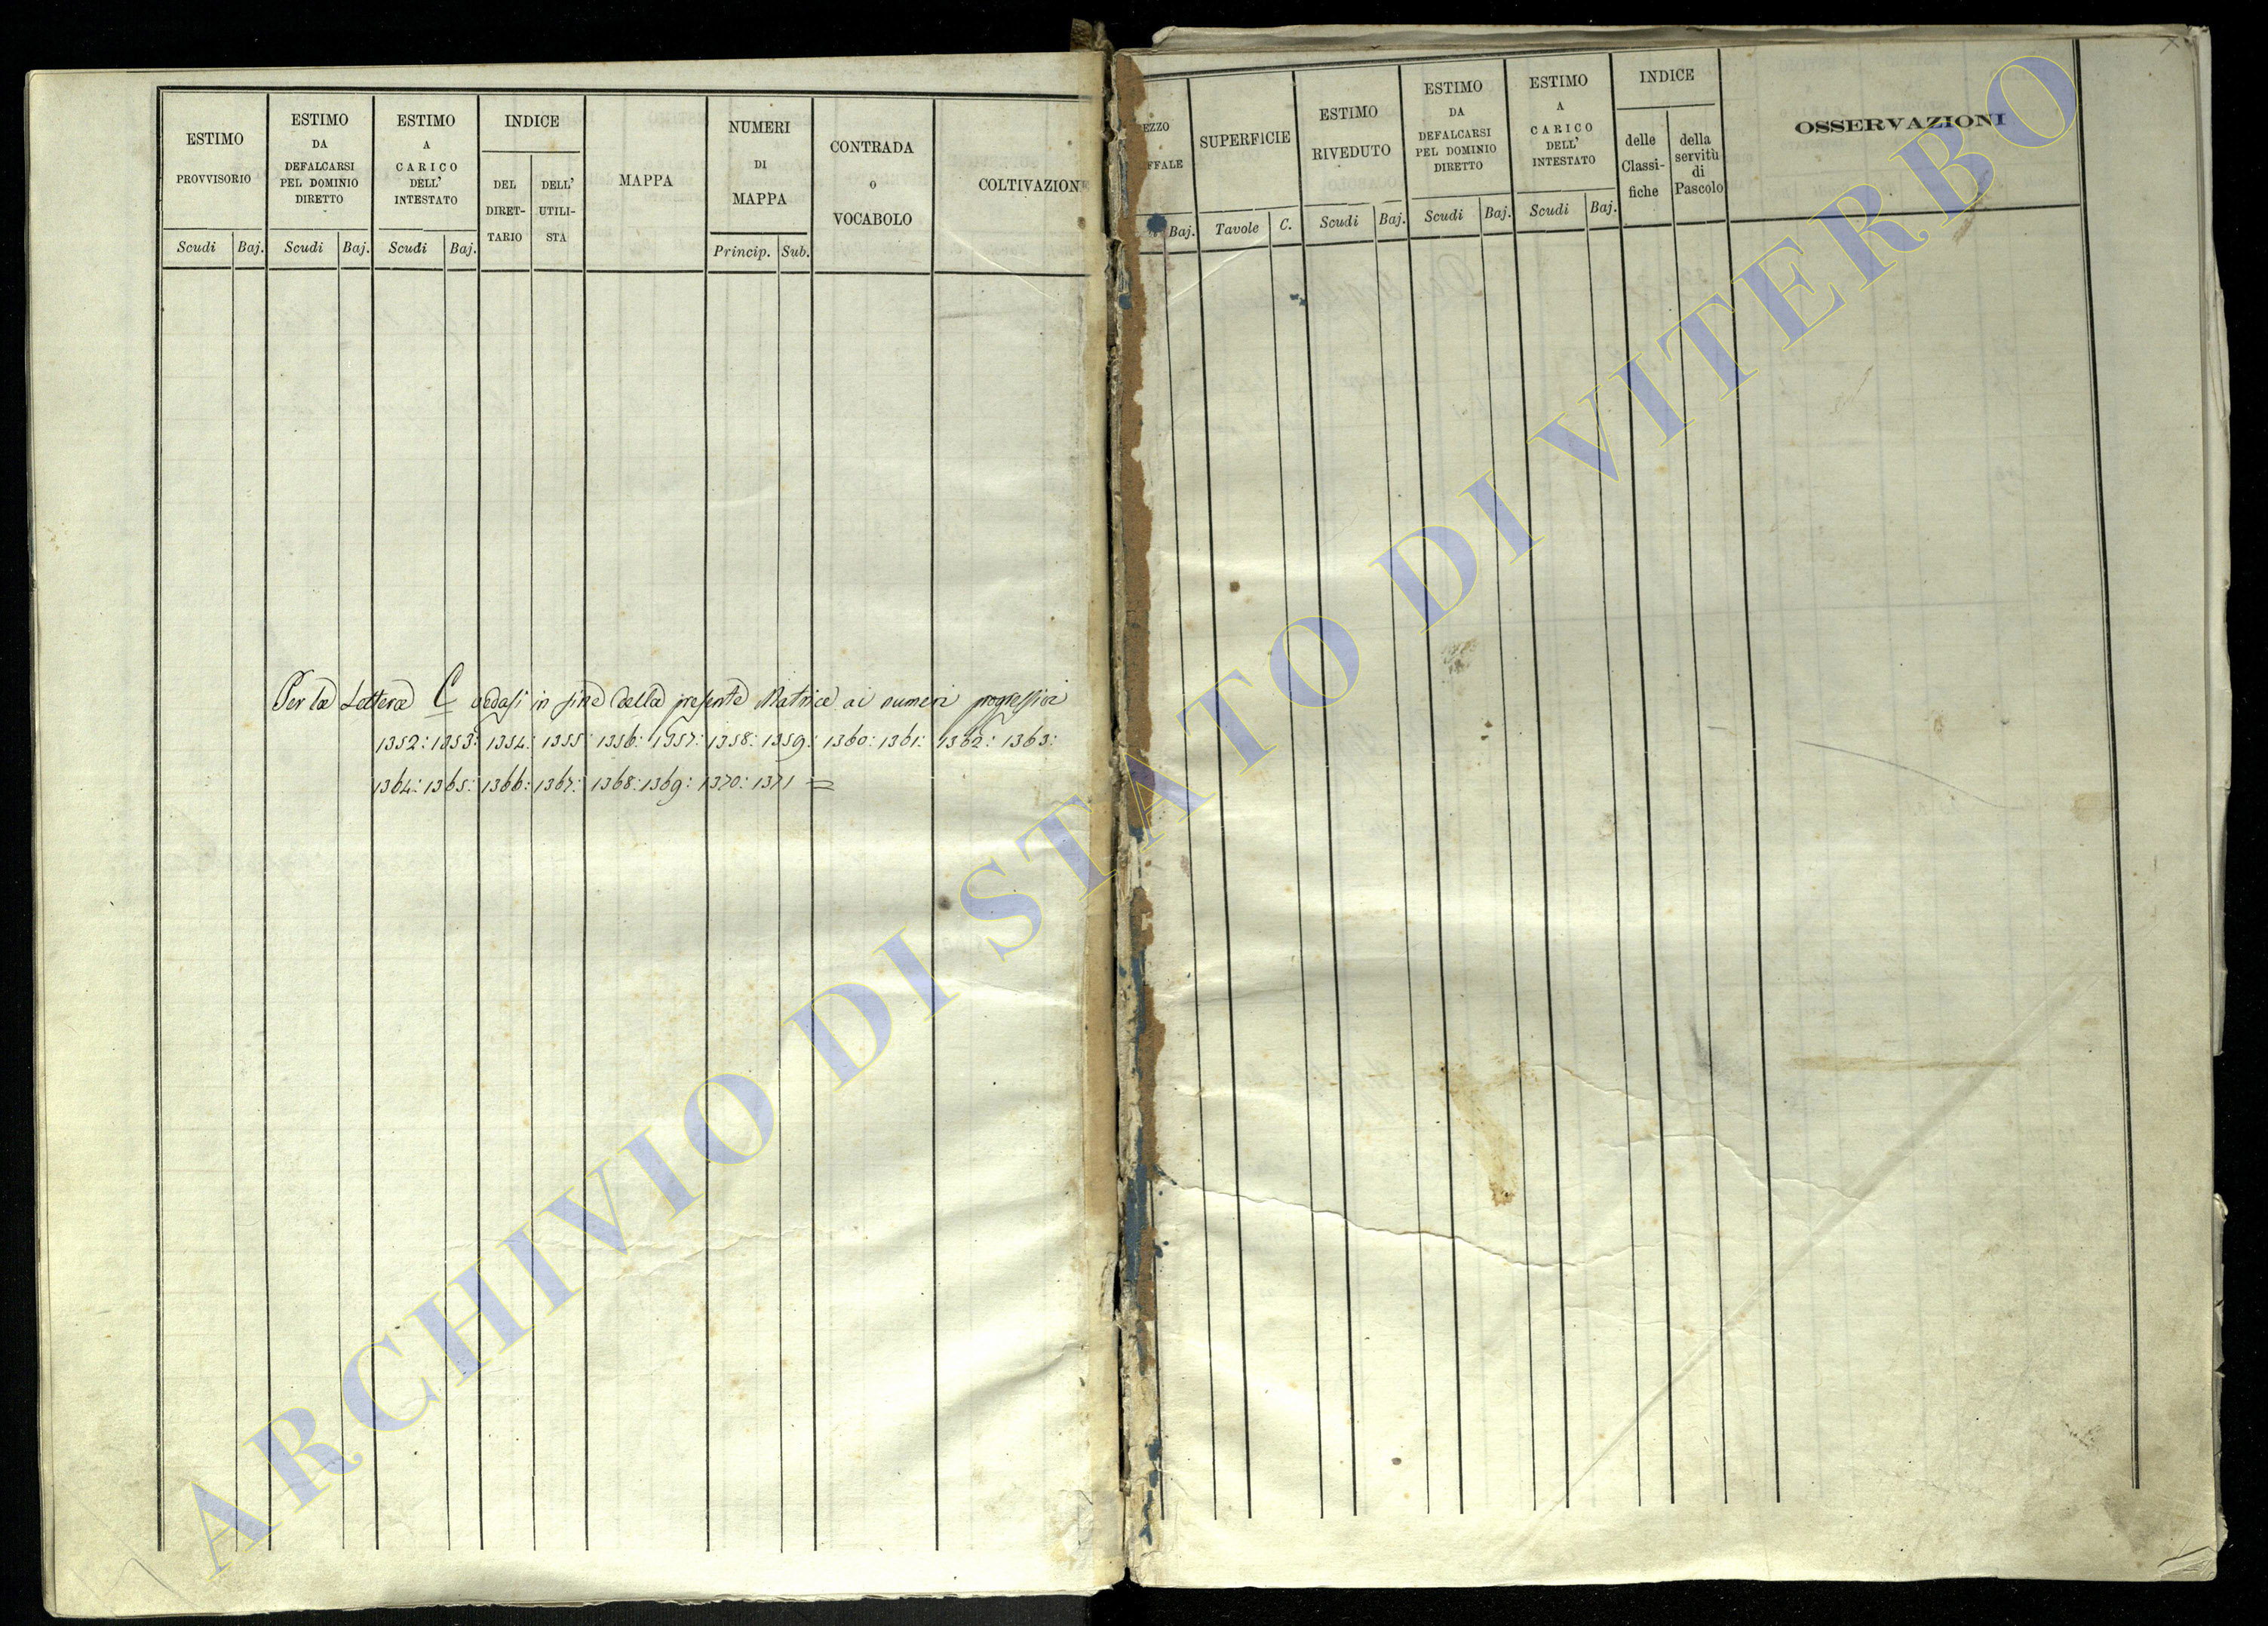 ESTIMO
PROVVISORIO
Scudi Baj.
ESTIMO
DA
DEFALCARSI
PEL DOMINIO
DIRETTO
Scudi Baj.
ESTIMO
A
CARICO
DELL'
INTESTATO
Scudi Baj.
INDICE
DEL
DIRET-
TARIO
DELL'
UTILI-
STA
MAPPA
NUMERI
DI
MAPPA
Princip. Sub.
CONTRADA
o
VOCABOLO
COLTIVAZIONE
Per la Lettera C vedasi in fine della presente Matrice ai numeri progressivi
1352: 1353: 1354: 1355: 1356: 1357: 1358: 1359: 1360: 1361: 1362: 1363:
1364: 1365: 1366: 1367: 1368: 1369: 1370: 1371 =
EZZO
FFALE
Baj.
SUPERFICIE
Tavole C.
ESTIMO
RIVEDUTO
Scudi Baj.
ESTIMO
DA
DEFALCARSI
PEL DOMINIO
DIRETTO
Scudi Baj.
ESTIMO
A
CARICO
DELL'
INTESTATO
Scudi Baj.
INDICE
delle
Classi-
fiche
della
servitù
di
Pascolo
OSSERVAZIONI
ARCHIVIO DI STATO DI VITERBO